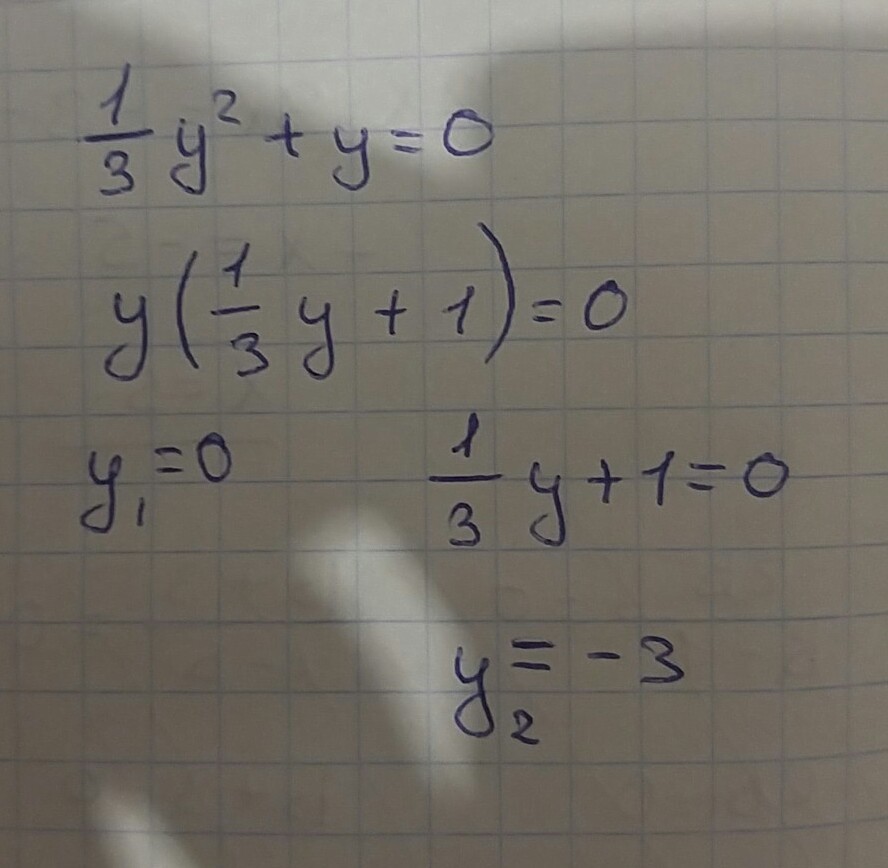 1/3 y² + y = 0
y(1/3 y + 1) = 0
y₁ = 0    1/3 y + 1 = 0
y₂ = -3